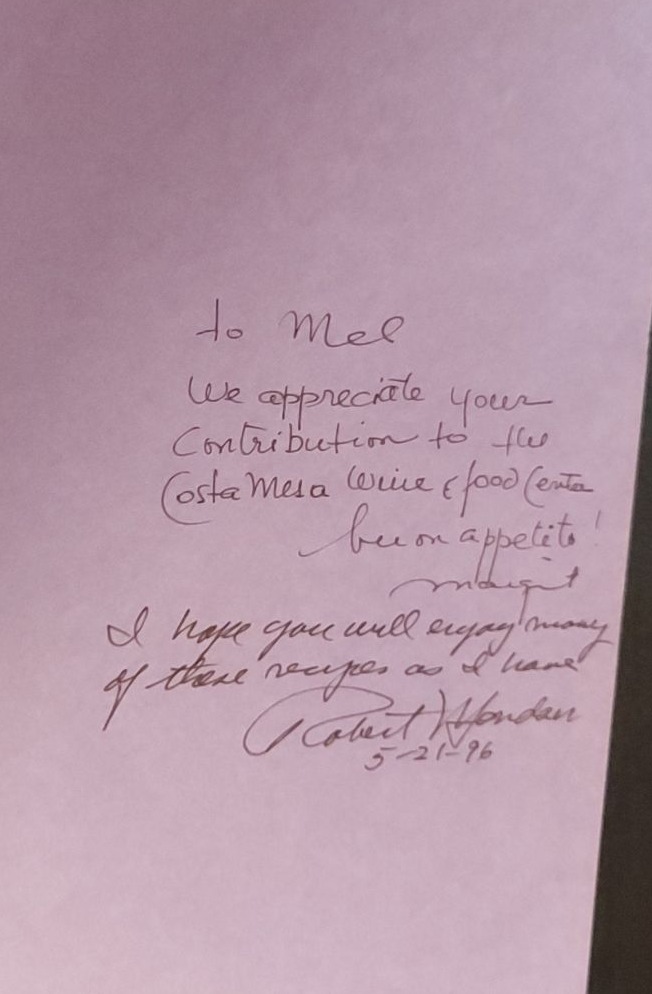 to Mel
We appreciate your
Contribution to the
Costa Mesa Wine & food Center
buon appetito!
margrit
I hope you will enjoy many
of these recipes as I have
Robert Mondavi
5-21-96